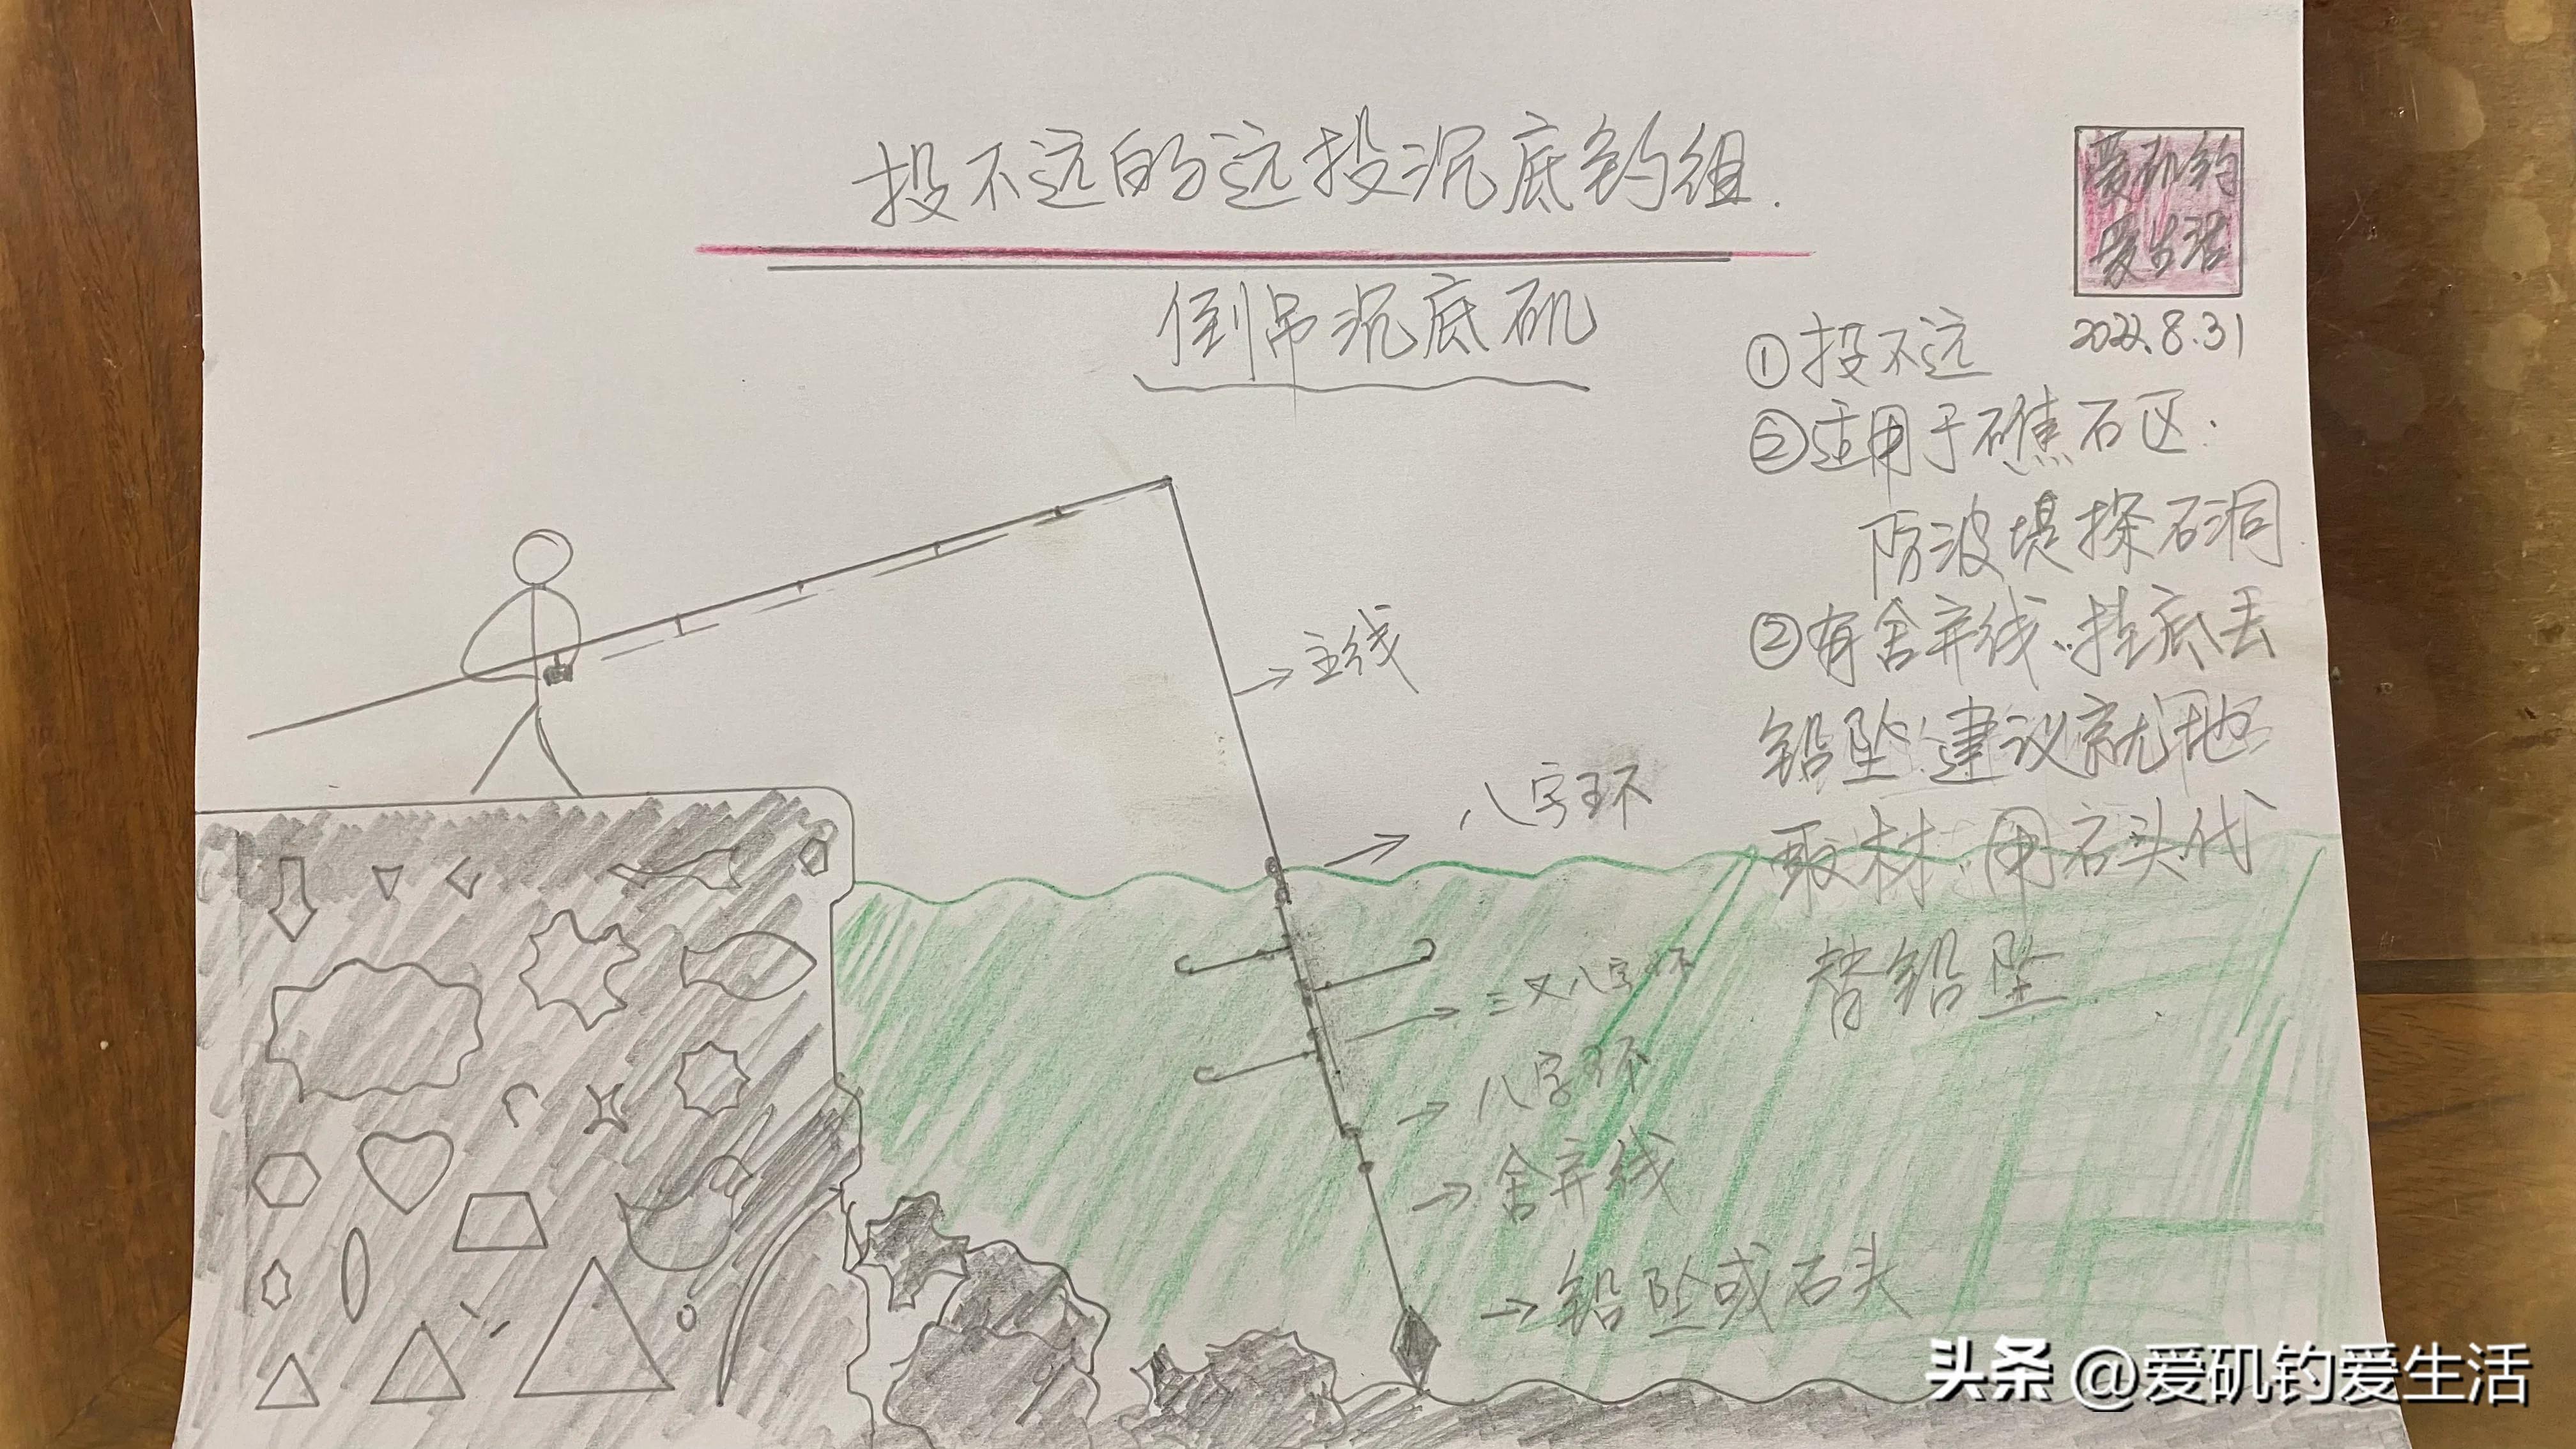 投不远的远投沉底钓组.
倒吊沉底矶
爱矶钓
爱生活
2022.8.31
①投不远
②适用于礁石区.
防波堤探石洞.
②有舍弃线、挂底丢
铅坠.建议就地
取材.用石头代
替铅坠.
→主线
→八字环
→三叉八字环
→八字环
→舍弃线
→铅坠或石头
头条 @爱矶钓爱生活